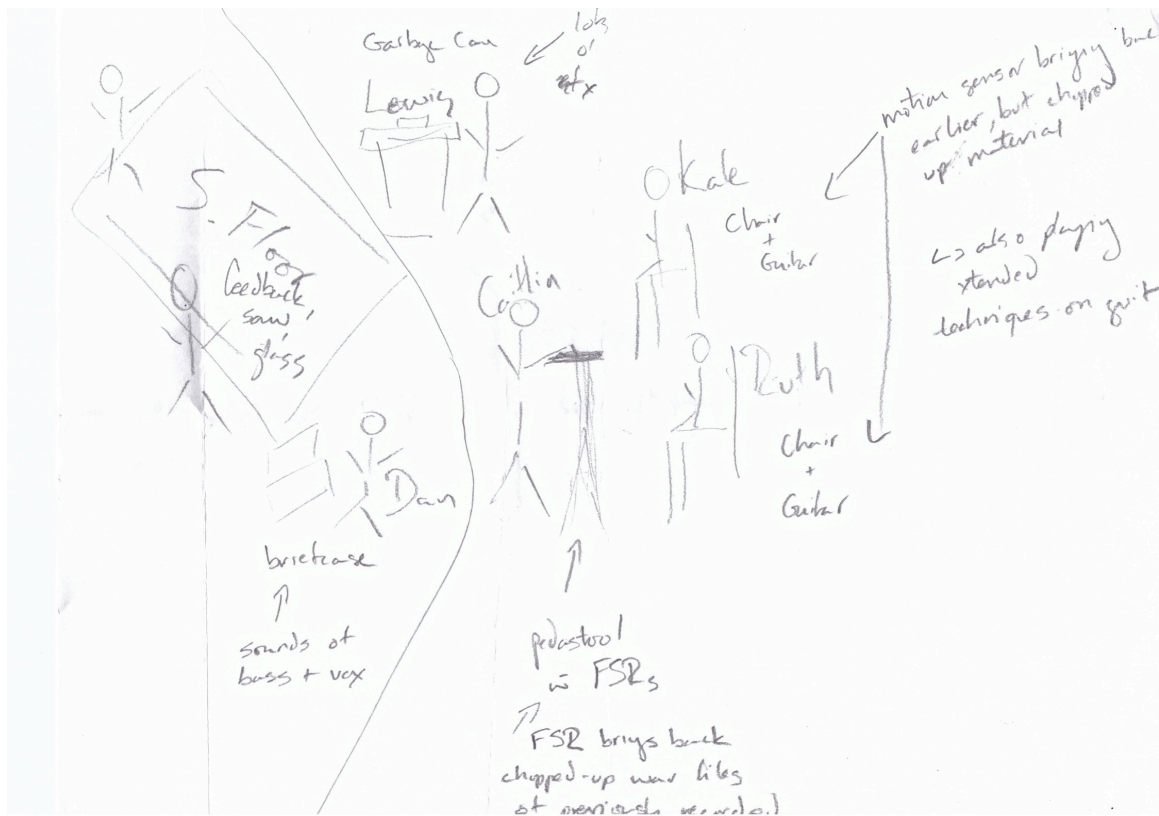 Garbage Can
Lewis
lots
o'
efx
motion sensor bringing back
earlier, but chopped
up material
↳ also playing
xtended
techniques on guit
Kate
Chair
+
Guitar
S.
feedback
saw,
glass
Caitlin
Ruth
Chair
+
Guitar
Dan
briefcase
sounds of
bass + vox
pedastool
w FSRs
FSR brings back
chopped-up wav files
of previously recorded